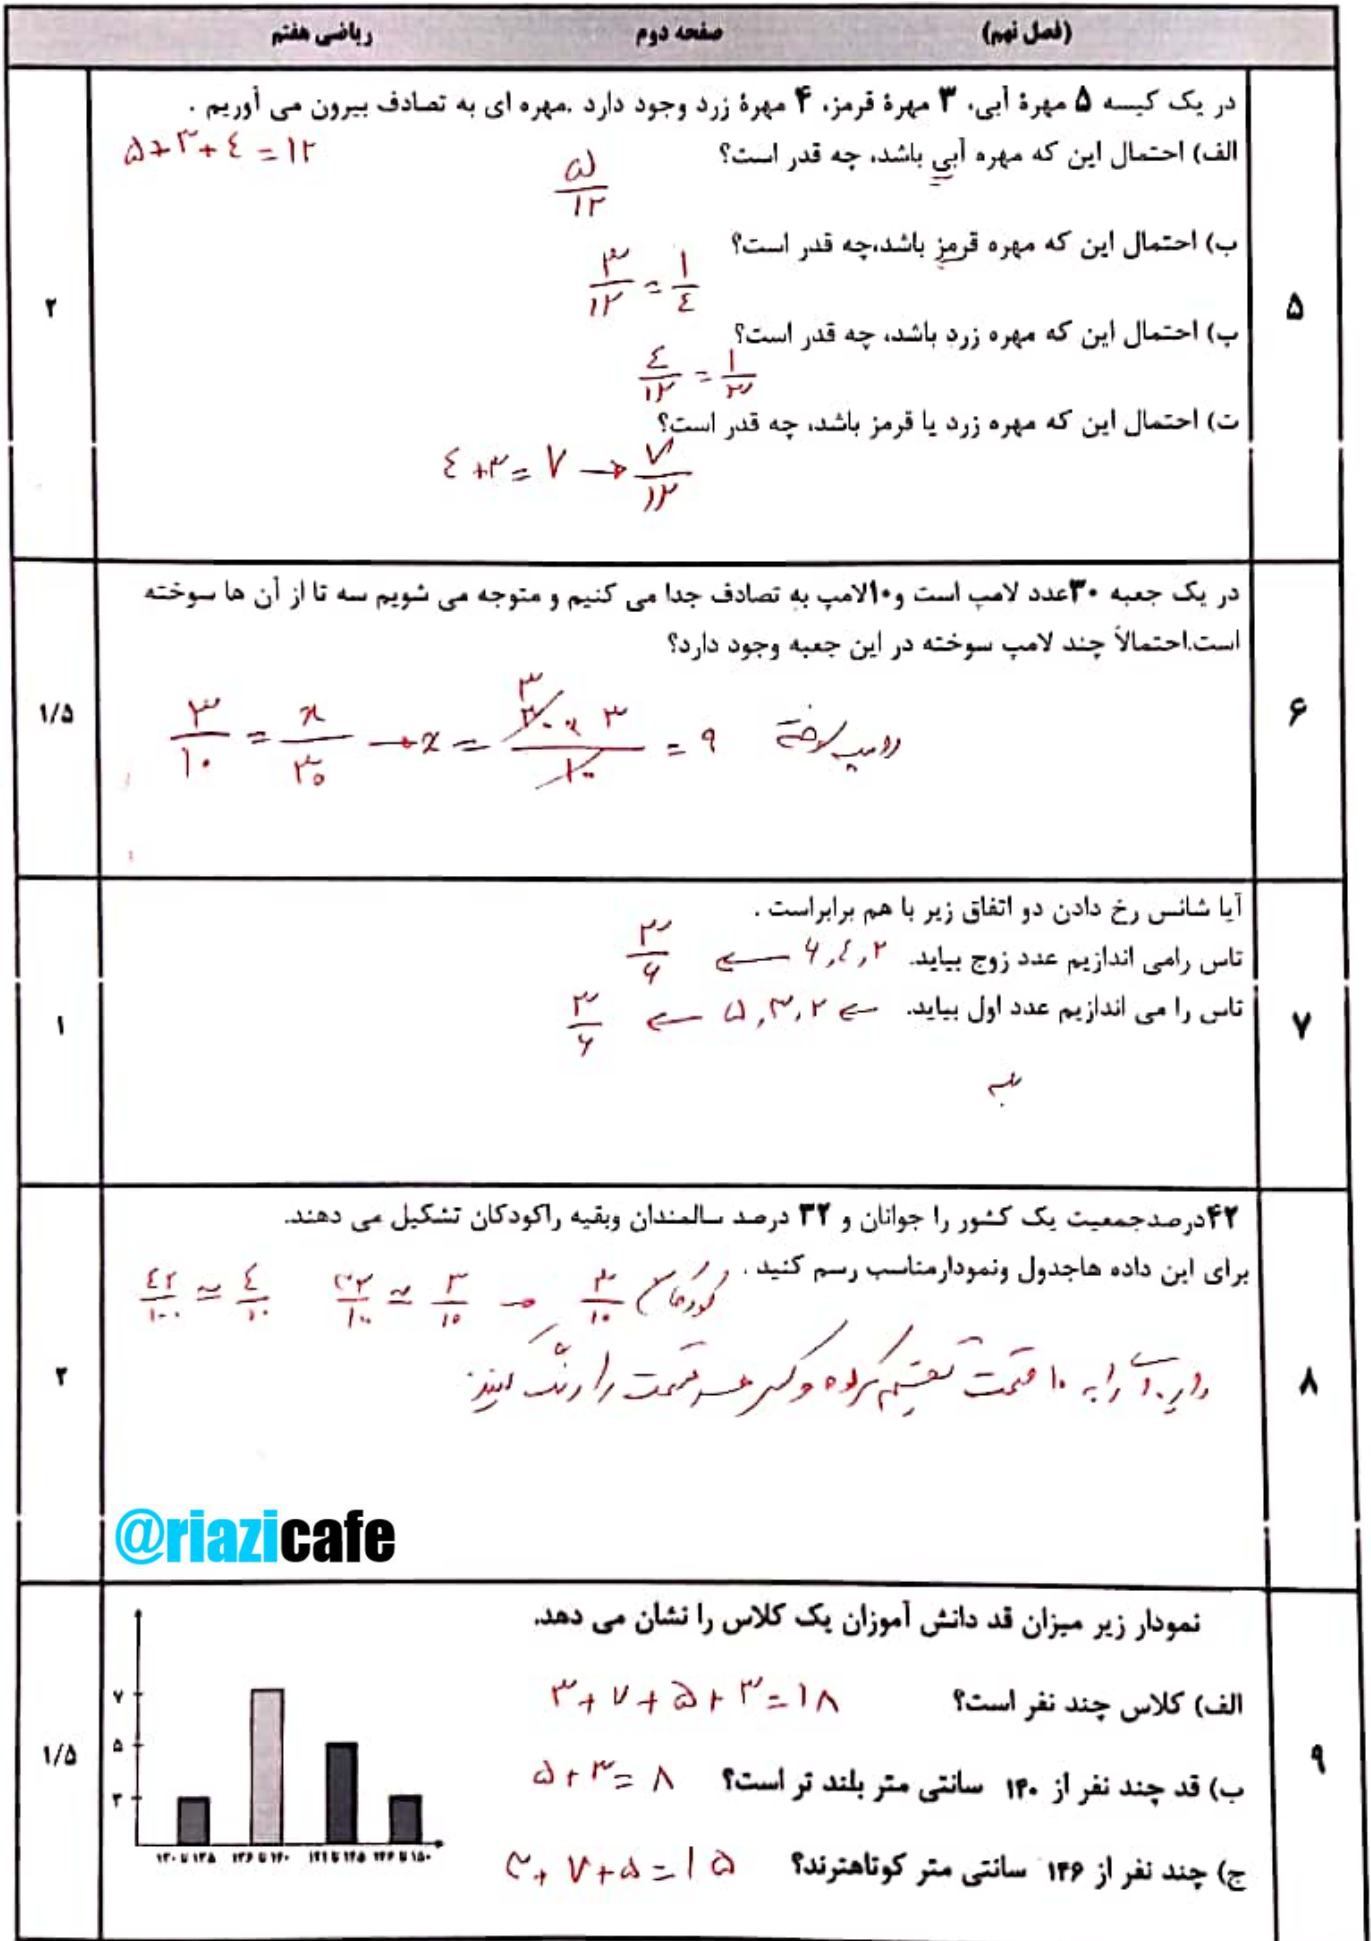 (فصل نهم) صفحه دوم ریاضی هفتم
۵
در یک کیسه ۵ مهرهٔ آبی، ۳ مهرهٔ قرمز، ۴ مهرهٔ زرد وجود دارد .مهره ای به تصادف بیرون می آوریم .
الف) احتمال این که مهره آبی باشد، چه قدر است؟ ۵/۱۲ ۵+۳+۴=۱۲
ب) احتمال این که مهره قرمز باشد،چه قدر است؟ ۳/۱۲ = ۱/۴
پ) احتمال این که مهره زرد باشد، چه قدر است؟ ۴/۱۲ = ۱/۳
ت) احتمال این که مهره زرد یا قرمز باشد، چه قدر است؟
۴+۳=۷ → ۷/۱۲
۲
۶
در یک جعبه ۳۰عدد لامپ است و۱۰لامپ به تصادف جدا می کنیم و متوجه می شویم سه تا از آن ها سوخته
است.احتمالاً چند لامپ سوخته در این جعبه وجود دارد؟
۳/۱۰ = x/۳۰ → x = ۳۰×۳/۱۰ = ۹ لامپ سوخته
۱/۵
۷
آیا شانس رخ دادن دو اتفاق زیر با هم برابراست .
تاس رامی اندازیم عدد زوج بیاید. ۲,۴,۶ ← ۳/۶
تاس را می اندازیم عدد اول بیاید. ← ۲,۳,۵ ← ۳/۶
بله
۱
۸
۴۲درصدجمعیت یک کشور را جوانان و ۳۲ درصد سالمندان وبقیه راکودکان تشکیل می دهند.
برای این داده هاجدول ونمودارمناسب رسم کنید .
۴۲/۱۰۰ ≈ ۴/۱۰ ۳۲/۱۰۰ ≈ ۳/۱۰ → ۳/۱۰ کودکان
دایره را به ۱۰ قسمت تقسیم کرده و کسر هر قسمت را رنگ کنید.
۲
@riazicafe
۹
نمودار زیر میزان قد دانش آموزان یک کلاس را نشان می دهد.
الف) کلاس چند نفر است؟ ۳+۷+۵+۳=۱۸
ب) قد چند نفر از ۱۴۰ سانتی متر بلند تر است؟ ۵+۳=۸
ج) چند نفر از ۱۴۶ سانتی متر کوتاهترند؟ ۳+۷+۵=۱۵
۷
۵
۳
۱۳۰ تا ۱۳۵ ۱۳۶ تا ۱۴۰ ۱۴۱ تا ۱۴۵ ۱۴۶ تا ۱۵۰
۱/۵